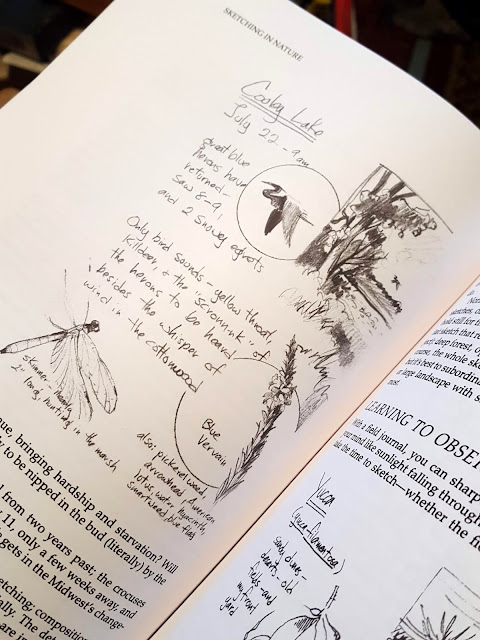 SKETCHING IN NATURE
Cooley Lake
July 22 - 9 am
great blue
herons have
returned -
saw 8-9,
and 2 snowy egrets
Only bird sounds - yellow throat,
killdeer, & the "scronnk" of
the herons to be heard
besides the whisper of
wind in the cottonwood
skimmer - nearly
2" long, hunting in the marsh
Blue
Vervain
also: pickerel weed,
arrowhead, American
lotus, water hyacinth,
smartweed, blue flag
ue, bringing hardship and starvation? Will
to be nipped in the bud (literally) by the
from two years past: the crocuses
11, only a few weeks away, and
gets in the Midwest's change-
etching: composition
ally. The
are in
hold still for
sketch that
deep forest,
the whole
best to subordinate
large landscape with
LEARNING TO OBSE
With a field journal, you can sharp
your mind like sunlight falling through
the time to sketch—whether the
Yucca
(Yucca filamentosa)
Sandy dunes -
deserts - old
fields - and
my front
yard